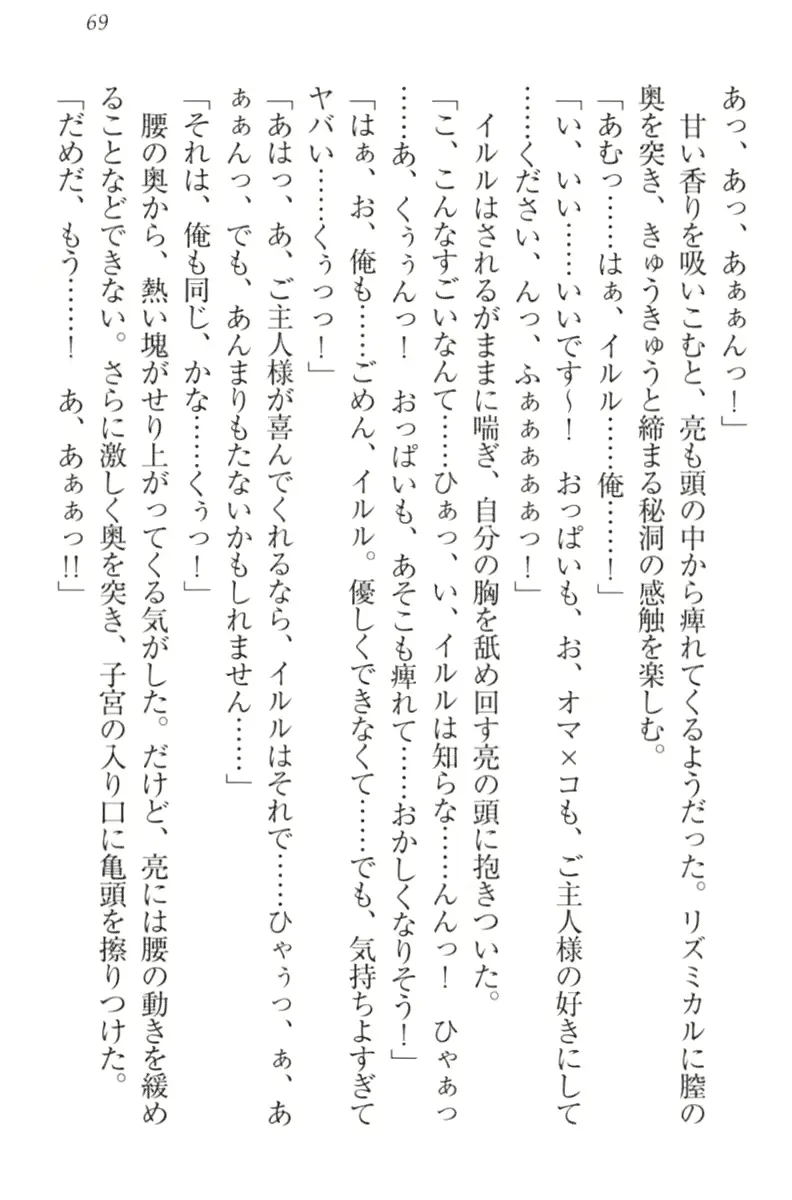 69
あっ、あっ、あぁぁんっ！」
　甘い香りを吸いこむと、亮も頭の中から痺れてくるようだった。リズミカルに膣の
奥を突き、きゅうきゅうと締まる秘洞の感触を楽しむ。
「あむっ……はぁ、イルル……俺……！」
「い、いい……いいです～！　おっぱいも、お、オマ×コも、ご主人様の好きにして
……ください、んっ、ふぁぁぁぁぁっ！」
　イルルはされるがままに喘ぎ、自分の胸を舐め回す亮の頭に抱きついた。
「こ、こんなすごいなんて……ひぁっ、い、イルルは知らな……んんっ！　ひゃぁっ
……あ、くぅぅんっ！　おっぱいも、あそこも痺れて……おかしくなりそう！」
「はぁ、お、俺も……ごめん、イルル。優しくできなくて……でも、気持ちよすぎて
ヤバい……くぅっっ！」
「あはっ、あ、ご主人様が喜んでくれるなら、イルルはそれで……ひゃぅっ、ぁ、あ
ぁぁんっ、でも、あんまりもたないかもしれません……」
「それは、俺も同じ、かな……くぅっ！」
　腰の奥から、熱い塊がせり上がってくる気がした。だけど、亮には腰の動きを緩め
ることなどできない。さらに激しく奥を突き、子宮の入り口に亀頭を擦りつけた。
「だめだ、もう……！　あ、あぁぁっ!!」